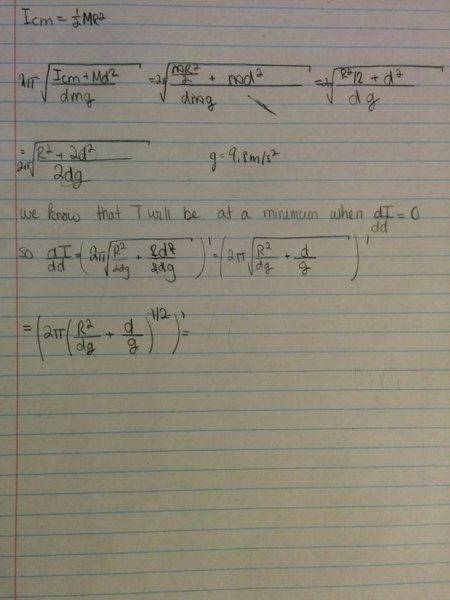 Icm = ½MR²
2π√((Icm + Md²)/(dmg)) = 2π√((mR²/2 + md²)/(dmg)) = 2π√((R²/2 + d²)/(dg))
= 2π√((R² + 2d²)/(2dg)) g = 9.8m/s²
we know that T will be at a minimum when dT/dd = 0
so dT/dd = (2π√(R²/2dg + 2d²/2dg))' = (2π√(R²/dg + d/g))'
= (2π(R²/dg + d/g)^1/2)' =